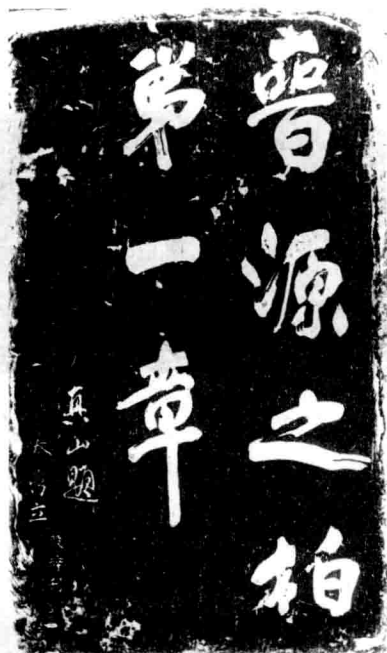 晉源之柏
第一章
真山題